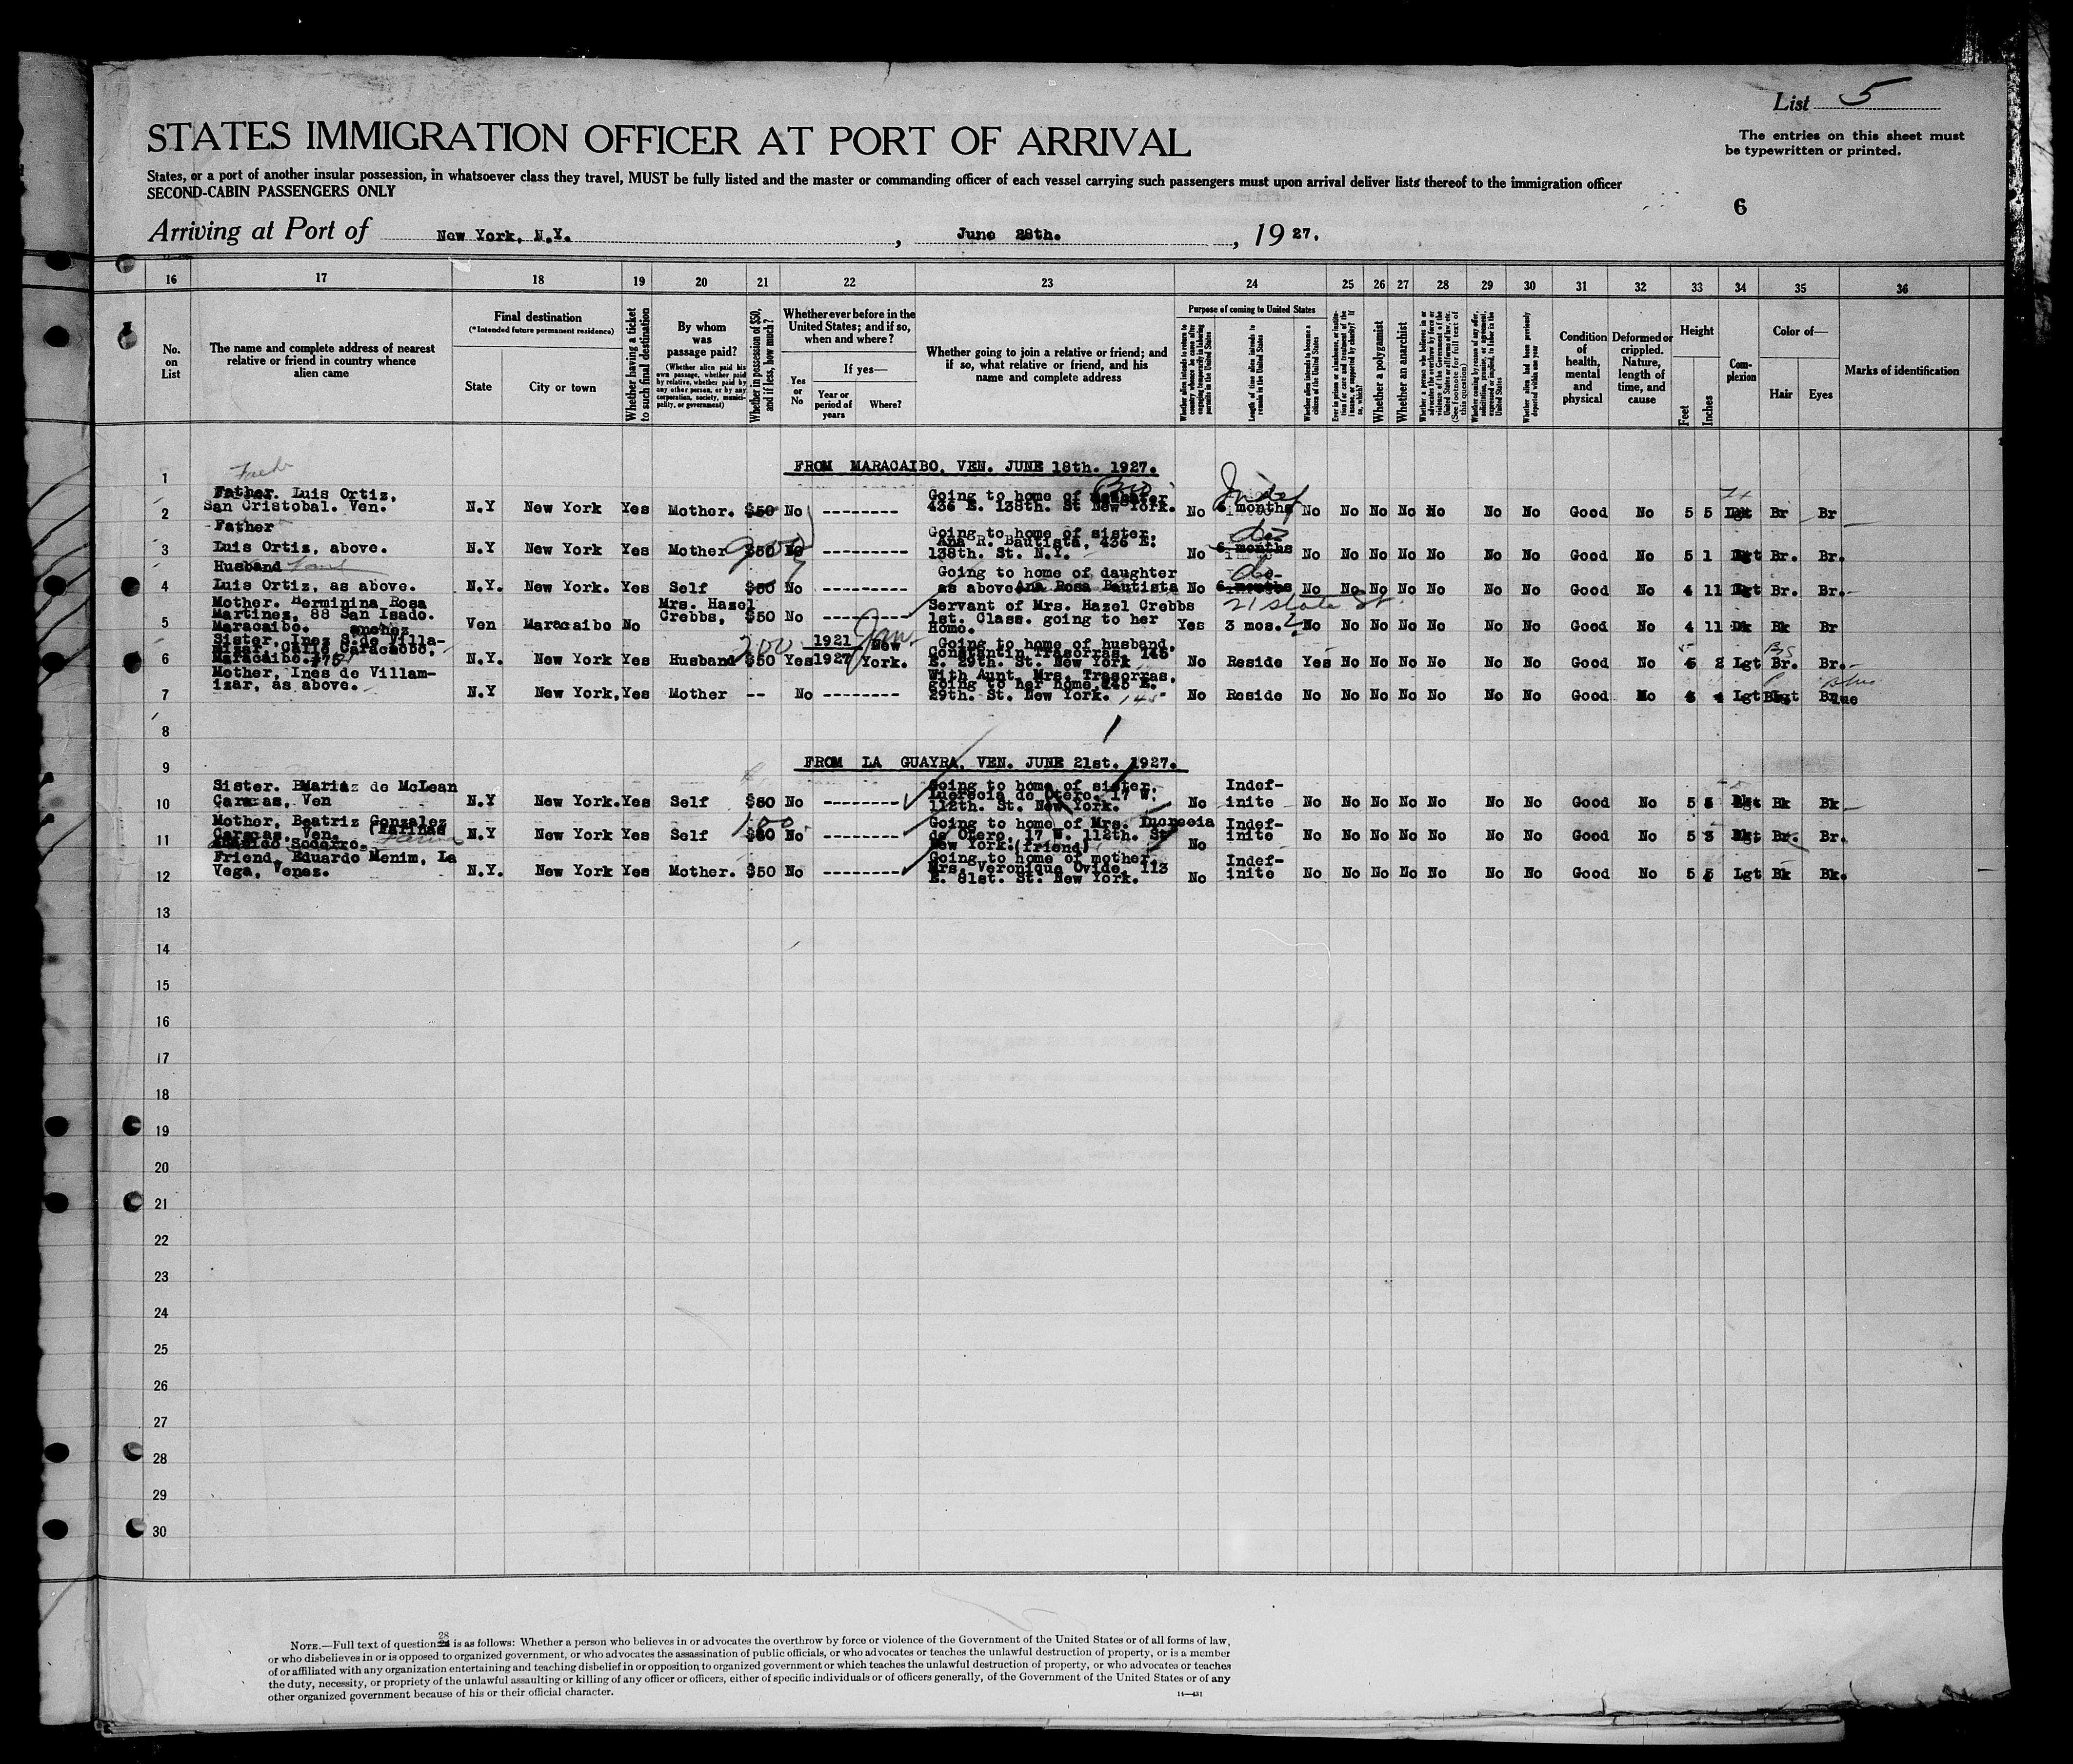 List 5
STATES IMMIGRATION OFFICER AT PORT OF ARRIVAL
The entries on this sheet must
be typewritten or printed.
States, or a port of another insular possession, in whatsoever class they travel, MUST be fully listed and the master or commanding officer of each vessel carrying such passengers must upon arrival deliver lists thereof to the immigration officer
SECOND-CABIN PASSENGERS ONLY
6
Arriving at Port of New York, N.Y. , June 28th. , 1927.
16 17 18 19 20 21 22 23 24 25 26 27 28 29 30 31 32 33 34 35 36
No. on List
The name and complete address of nearest relative or friend in country whence alien came
Final destination
(*Intended future permanent residence)
State
City or town
Whether having a ticket to such final destination
By whom was passage paid?
(Whether alien paid his own passage, whether paid by relative, whether paid by any other person, or by any corporation, society, municipality, or government)
Whether in possession of $50, and if less, how much?
Whether ever before in the United States; and if so, when and where?
Yes or No
If yes—
Year or period of years
Where?
Whether going to join a relative or friend; and if so, what relative or friend, and his name and complete address
Purpose of coming to United States
Whether alien intends to return to country whence he came after engaging temporarily in laboring pursuits in the United States
Length of time alien intends to remain in the United States
Whether alien intends to become a citizen of the United States
Whether a polygamist
Whether an anarchist
Whether alien had been previously deported within one year
Condition of health, mental and physical
Deformed or crippled. Nature, length of time, and cause
Height
Feet
Inches
Complexion
Color of—
Hair
Eyes
Marks of identification
1
FROM MARACAIBO, VEN. JUNE 18th. 1927.
2 Father. Luis Ortiz, San Cristobal. Ven. N.Y New York Yes Mother. $50 No --------- Going to home of 436 E. 138th. St New York. No Indef 6 months No No No No No No No Good No 5 5 Br Br
3 Father Luis Ortiz, above. N.Y New York Yes Mother $50 No --------- Going to home of sister, Ana R. Bautista, 436 E. 138th. St. N.Y. No do 6 months No No No No No No No Good No 5 1 Br. Br.
4 Husband Luis Ortiz, as above. N.Y. New York. Yes Self $50 No --------- Going to home of daughter as above Ana Rosa Bautista No do 6 months No No No No No No No Good No 4 11 Br. Br.
5 Mother. Herminina Rosa Martinez, 88 San Isado. Maracaibo. Ven Maracaibo No Mrs. Hazel Crebbs, $50 No --------- Servant of Mrs. Hazel Crebbs 1st. Class. going to her Home. 21 State St. Yes 3 mos. No No No No No No No Good No 4 11 Dk Bk Br
6 Sister. Inez S. de Villamizar, Calle Carabobo, Maracaibo. N.Y. New York Yes Husband 200 $50 Yes 1921 1927 Jan. New York. Going to home of husband, Constantin Trasorras, 145 E. 29th. St. New York No Reside Yes No No No No No No Good No 5 2 Lgt Br. Br.
7 Mother, Ines de Villamizar, as above. N.Y New York, Yes Mother -- No --------- With Aunt, Mrs. Trasorras, going to her home, 145 E. 29th. St. New York. 145 No Reside No No No No No No Good No 4 Lgt Blue
8
9
FROM LA GUAYRA, VEN. JUNE 21st. 1927.
10 Sister. Maria de McLean Caracas, Ven N.Y New York. Yes Self $50 No --------- Going to home of sister, Lucrecia de Otero. 17 W. 112th. St. New York. No Indefinite No No No No No No No Good No 5 Bk Bk
11 Mother, Beatriz Gonzalez Caracas. Ven. N.Y New York Yes Self 100 No --------- Going to home of Mrs. Lucrecia de Otero, 17 W. 112th. St New York. (friend) No Indefinite No No No No No No No Good No 5 3 Br. Br.
12 Friend, Eduardo Menim, La Vega, Venez. N.Y. New York Yes Mother. $50 No --------- Going to home of mother, Mrs. Veronique Ovide, 113 E. 81st. St. New York. No Indefinite No No No No No No No Good No 5 Lgt Bk Bk.
13
14
15
16
17
18
19
20
21
22
23
24
25
26
27
28
29
30
NOTE.—Full text of question 28 is as follows: Whether a person who believes in or advocates the overthrow by force or violence of the Government of the United States or of all forms of law,
or who disbelieves in or is opposed to organized government, or who advocates the assassination of public officials, or who advocates or teaches the unlawful destruction of property, or is a member
of or affiliated with any organization entertaining and teaching disbelief in or opposition to organized government or which teaches the unlawful destruction of property, or who advocates or teaches
the duty, necessity, or propriety of the unlawful assaulting or killing of any officer or officers, either of specific individuals or of officers generally, of the Government of the United States or of any
other organized government because of his or their official character.